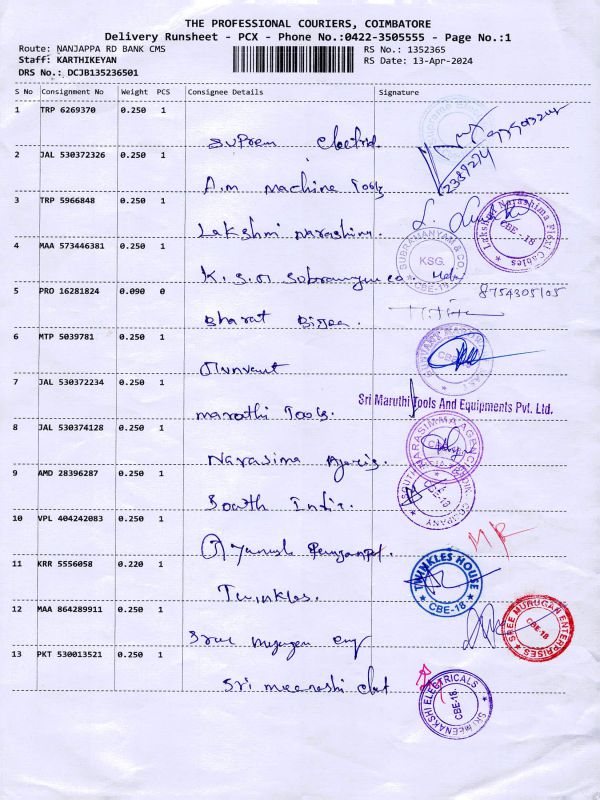 THE PROFESSIONAL COURIERS, COIMBATORE
Delivery Runsheet - PCX - Phone No.:0422-3505555 - Page No.:1
Route: NANJAPPA RD BANK CMS
RS No.: 1352365
Staff: KARTHIKEYAN
RS Date: 13-Apr-2024
DRS No.: DCJB135236501
S No Consignment No Weight PCS Consignee Details Signature
1 TRP 6269370 0.250 1
Suprem Electrical
2 JAL 530372326 0.250 1
A.m machine Tools
3 TRP 5966848 0.250 1
Lakshmi narashima
Lakshmi Narashima Flexi Cables
CBE-18
4 MAA 573446381 0.250 1
K.S.G Subramaniyam co
SUBRAMANYAM & CO
KSG.
CBE-18
5 PRO 16281824 0.090 0
8754305105
Bharat
6 MTP 5039781 0.250 1
CBE
7 JAL 530372234 0.250 1
Sri Maruthi Tools And Equipments Pvt. Ltd.
maruthi Tools.
8 JAL 530374128 0.250 1
Narasima
9 AMD 28396287 0.250 1
South India.
CBE-18
10 VPL 404242083 0.250 1
11 KRR 5556058 0.220 1
Twinkles.
TWINKLES HOUSE
CBE-18
12 MAA 864289911 0.250 1
Sree murugan
SREE MURUGAN ENTERPRISES
CBE-18
13 PKT 530013521 0.250 1
Sri meenashi
SRI MEENAKSHI ELECTRICALS
CBE-18.